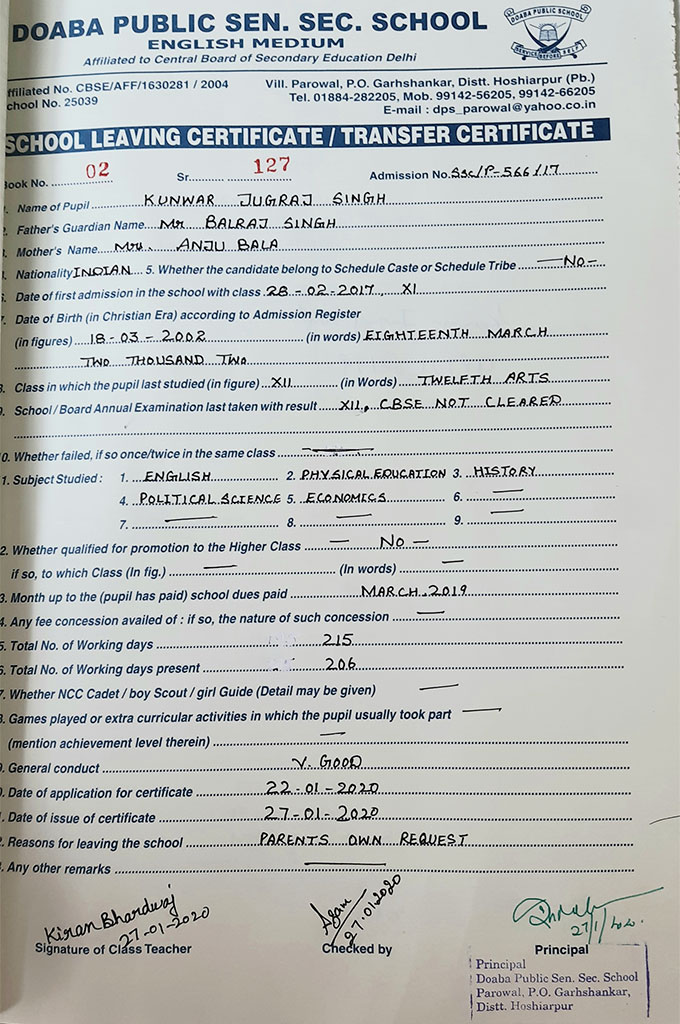 DOABA PUBLIC SEN. SEC. SCHOOL
ENGLISH MEDIUM
Affiliated to Central Board of Secondary Education Delhi
DOABA PUBLIC SCHOOL
SERVICE BEFORE SELF
ffiliated No. CBSE/AFF/1630281 / 2004 Vill. Parowal, P.O. Garhshankar, Distt. Hoshiarpur (Pb.)
chool No. 25039 Tel. 01884-282205, Mob. 99142-56205, 99142-66205
E-mail : dps_parowal@yahoo.co.in
SCHOOL LEAVING CERTIFICATE / TRANSFER CERTIFICATE
ook No. 02 Sr. 127 Admission No. SSC/P-566/17
. Name of Pupil KUNWAR JUGRAJ SINGH
. Father's Guardian Name Mr BALRAJ SINGH
. Mother's Name Mrs. ANJU BALA
. Nationality INDIAN 5. Whether the candidate belong to Schedule Caste or Schedule Tribe —No—
. Date of first admission in the school with class 28-02-2017, XI
. Date of Birth (in Christian Era) according to Admission Register
(in figures) 18-03-2002 (in words) EIGHTEENTH MARCH
TWO THOUSAND TWO
. Class in which the pupil last studied (in figure) XII (in Words) TWELFTH ARTS
. School / Board Annual Examination last taken with result XII, CBSE NOT CLEARED
0. Whether failed, if so once/twice in the same class —
1. Subject Studied : 1. ENGLISH 2. PHYSICAL EDUCATION 3. HISTORY
4. POLITICAL SCIENCE 5. ECONOMICS 6. —
7. — 8. — 9. —
2. Whether qualified for promotion to the Higher Class — No —
if so, to which Class (In fig.) — (In words) —
3. Month up to the (pupil has paid) school dues paid MARCH.2019
4. Any fee concession availed of : if so, the nature of such concession —
5. Total No. of Working days 215
6. Total No. of Working days present 206
7. Whether NCC Cadet / boy Scout / girl Guide (Detail may be given) —
8. Games played or extra curricular activities in which the pupil usually took part —
(mention achievement level therein) —
9. General conduct V. GOOD
0. Date of application for certificate 22-01-2020
. Date of issue of certificate 27-01-2020
2. Reasons for leaving the school PARENTS OWN REQUEST
. Any other remarks —
Kiran Bhardwaj
27-01-2020
27.01.2020
27/1/2020.
Signature of Class Teacher Checked by Principal
Principal
Doaba Public Sen. Sec. School
Parowal, P.O. Garhshankar,
Distt. Hoshiarpur